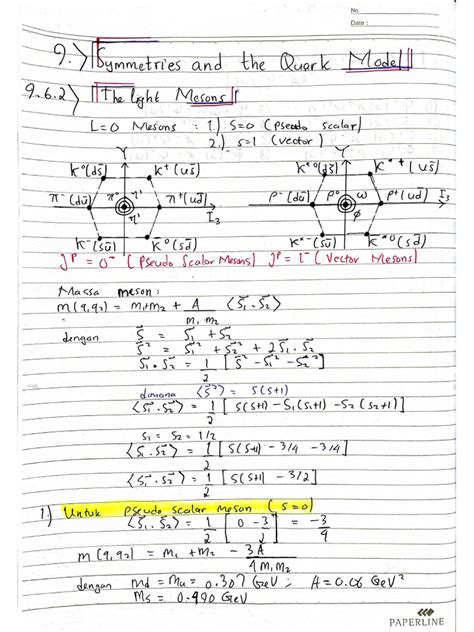 No.
Date :
9.) Symmetries and the Quark Model
9.6.2) The light Mesons
L=0 Mesons : 1.) S=0 (pseudo scalar)
2.) s=1 (vector)
Y
K⁰(ds̄) K⁺(us̄)
π⁻(dū) π⁰ η' π⁺(ud̄) I₃
η'
K⁻(sū) K̄⁰(sd̄)
Y
K*⁰(ds̄) K*⁺(us̄)
ρ⁻(dū) ρ⁰ ω ρ⁺(ud̄) I₃
φ
K*⁻(sū) K̄*⁰(sd̄)
J^P = 0⁻ (Pseudo Scalar Mesons) J^P = 1⁻ (Vector Mesons)
Massa meson :
m(q₁q₂) = m₁+m₂ + A/(m₁ m₂) ⟨S⃗₁·S⃗₂⟩
dengan S⃗ = S⃗₁ + S⃗₂
S⃗² = S⃗₁² + S⃗₂² + 2S⃗₁·S⃗₂
S⃗₁·S⃗₂ = 1/2 [S⃗² - S⃗₁² - S⃗₂²]
dimana ⟨S⃗²⟩ = S(S+1)
⟨S⃗₁·S⃗₂⟩ = 1/2 [S(S+1) - S₁(S₁+1) - S₂(S₂+1)]
S₁ = S₂ = 1/2
⟨S⃗₁·S⃗₂⟩ = 1/2 [S(S+1) - 3/4 - 3/4]
⟨S⃗₁·S⃗₂⟩ = 1/2 [S(S+1) - 3/2]
1.) Untuk pseudo scalar meson (s=0)
⟨S⃗₁·S⃗₂⟩ = 1/2 [0 - 3/2] = -3/4
m(q₁q₂) = m₁ + m₂ - 3A/(4m₁m₂)
dengan md = mu = 0.307 GeV ; A = 0.06 GeV³
ms = 0.490 GeV
PAPERLINE